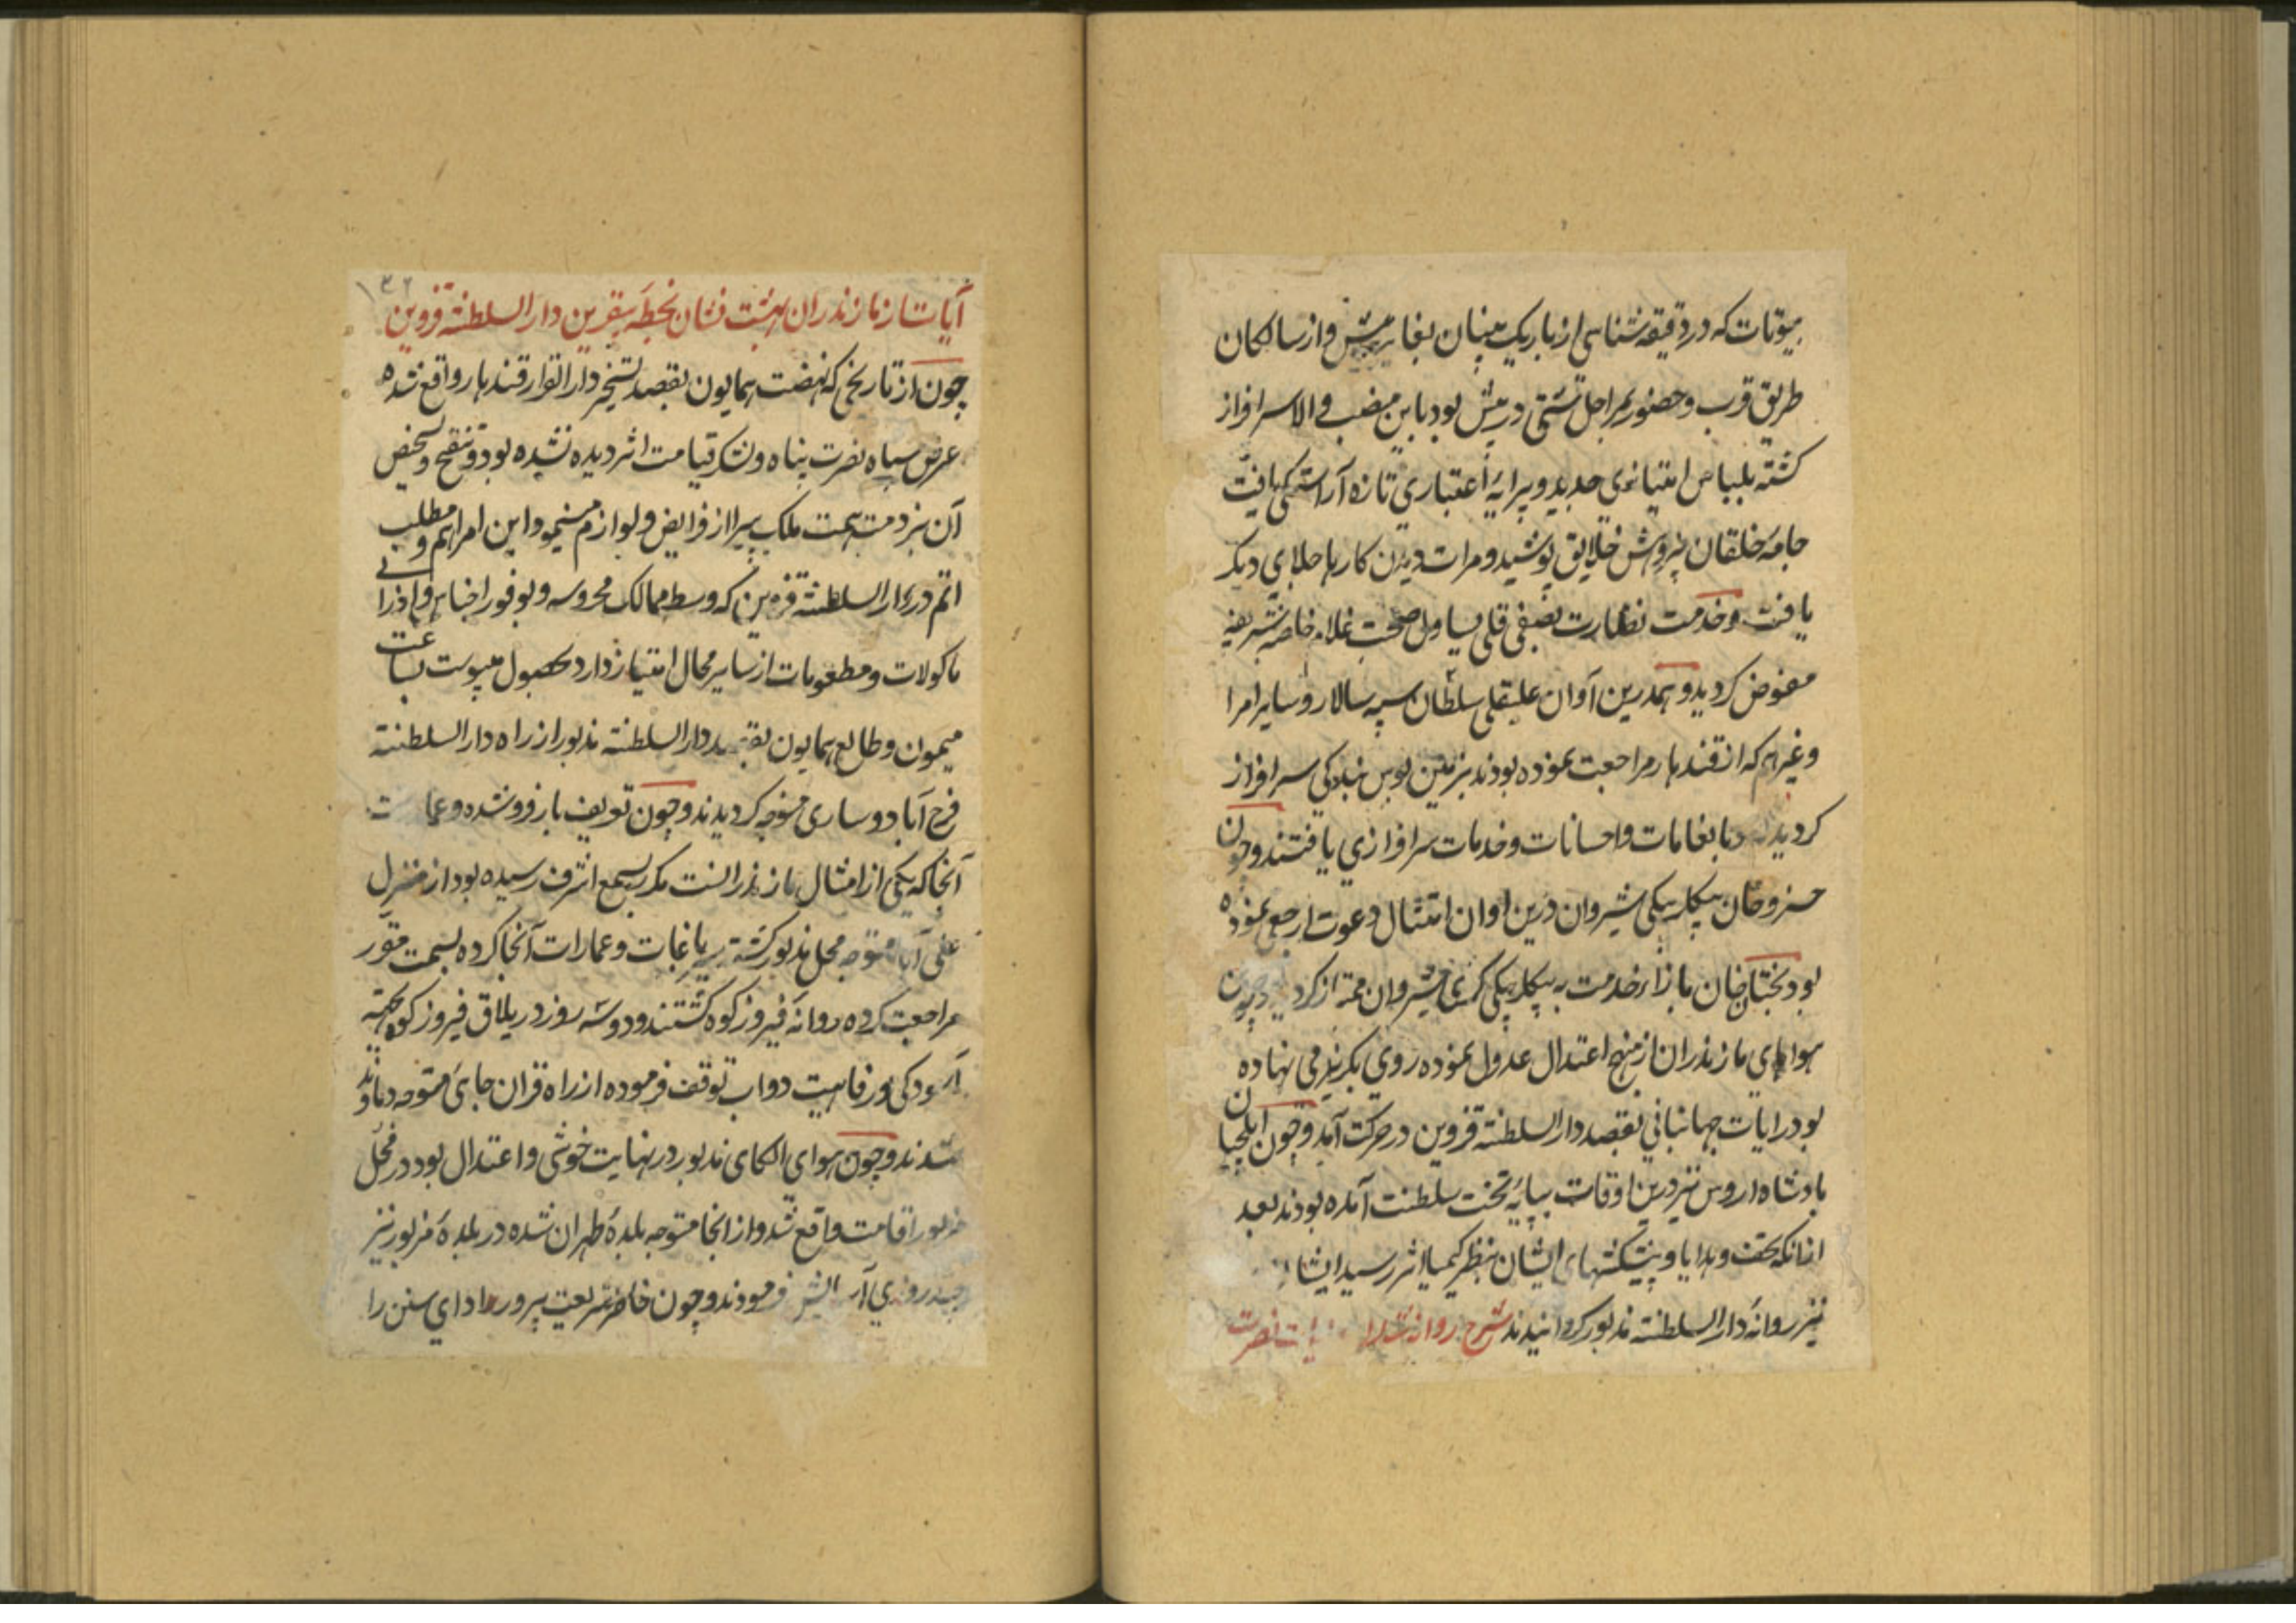 بیوتات که در دقیقه شناسی از باریک بینان بغایت پیش و از سالکان
طریق قرب و حضور بمراحل شتی در پیش بود باین منصب والا سرافراز
کشته بلباس امتیازی جدید و پیرایهٔ اعتباری تازه آراستکی یافت
جامهٔ خلقان خلایق پوشید و مرات دیدن کارها جلای دیکر
یافت و خدمت نظارت بصفی قلی یساول صحبت غلام خاصه شریفه
مفوض کردید و همدرین آوان علیقلی سلطان سپه سالار و سایر امرا
و غیرهم که از قندهار مراجعت نموده بودند بزمین بوس بندکی سرافراز
کردیده بانعامات و احسانات و خدمات سرافرازی یافتند و چون
خسرو خان بیکلربیکی شیروان درین اوان امتثال دعوت ارجعی نموده
بود بختان خان بازاء خدمت به بیکلربیکی کری شیروان ممتاز کردید و چون
هواهای مازندران از منهج اعتدال عدول نموده روی بکرمی نهاده
بود رایات جهانبانی بقصد دار السلطنه قزوین در حرکت آمد و چون ایلچیان
بادشاه اروس نیز درین اوقات بپایهٔ تخت سلطنت آمده بودند بعد
از انکه تحف و هدایا و پیشکشهای ایشان بنظر کیمیا اثر رسید ایشان
نیز روانهٔ دار السلطنه مذبور کردانیدند شرح روانه شدن رایات نصرت
۱۳۲
آیات از مازندران بهشت نشان بخطهٔ دار السلطنه قزوین
چون از تاریخی که نهضت همایون بقصد تسخیر دار القرار قندهار واقع شده
عرض سپاه نصرت پناه و لشکر قیامت اثر دیده نشده بود و تنقیح و تحض
آن بر ذمت همت ملک پیرا از فرایض و لوازم مینمود و این امر اهم و مطلب
اتم در دار السلطنه قزوین که وسط ممالک محروسه و بوفور اجناس و فراوانی
ماکولات و مطعومات از سایر محال امتیاز دارد بحصول میپیوست بساعت
میمون و طالع همایون بقصد دار السلطنه مذبور از راه دار السلطنته
فرح آباد و ساری متوجه کردیدند و چون تعریف بارفروشده و عمارت
آنجا که یکی از امثال مازندرانست مکرر بسمع اشرف رسیده بود از منزل
علی آباد متوجه محل مذبور کشته سیر باغات و عمارات آنجا کرده بسمت مقرر
مراجعت کرده روانهٔ فیروزکوه کشتند و دو سه روز در ییلاق فیروزکوه بجهة
آسودکی و رفاهیت دواب توقف فرموده از راه قران جای متوجه دماوند
شدند و چون هوای الکای مذبور در نهایت خوشی و اعتدال بود در محل
مذبور اقامت واقع شد و از انجا متوجه بلدهٔ طهران شده در بلدهٔ مزبور نیز
چند روزی فرمودند و چون خاطر شریعت پرور ادای سنن را